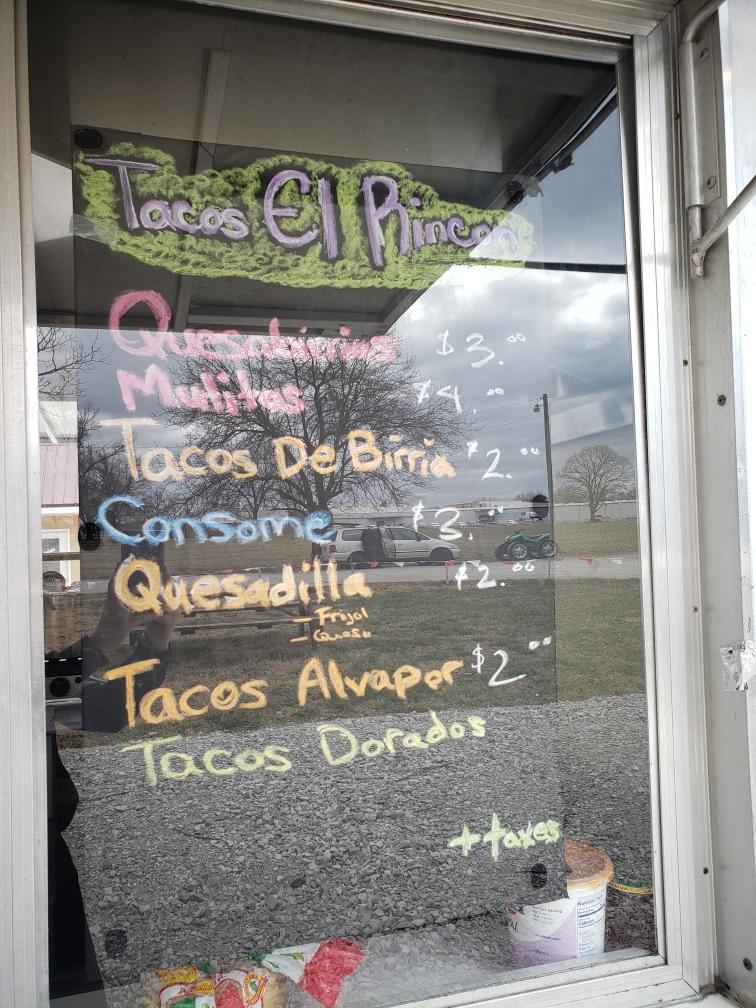 Tacos El Rincon
Quesabirrias $3.00
Mulitas $4.00
Tacos De Birria $2.00
Consome $3.00
Quesadilla $2.00
- Frijol
- Queso
Tacos Alvapor $2.00
Tacos Dorados
+taxes
Nutrition Facts
Calories